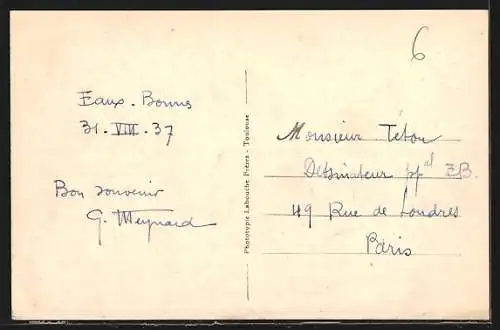 6
Eaux-Bonnes
31-VIII-37
Bon souvenir
G. Meynard
Phototypie Labouche Frères - Toulouse
Monsieur Tétou
Dessinateur ppal EB.
49 Rue de Londres
Paris